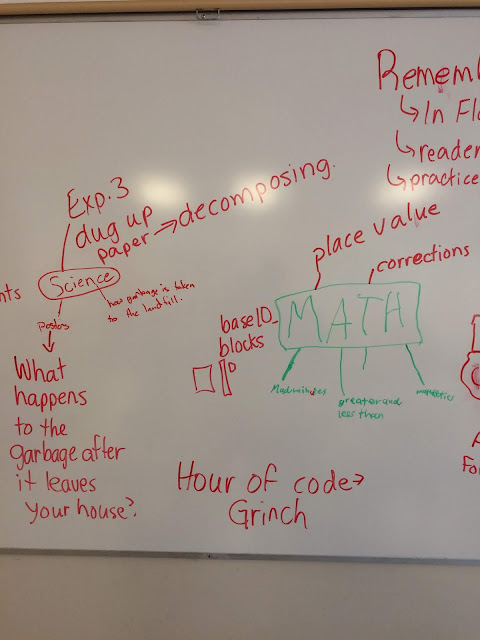 Rememb
↳In Fl
↳reader
↳practice
Exp.3
dug up
paper → decomposing.
Science
how garbage is taken
to the landfill.
nts
posters
What
happens
to the
garbage after
it leaves
your house?
place value
corrections
MATH
base10
blocks
Madminutes
greater and
less than
Hour of code→
Grinch
A
Fo